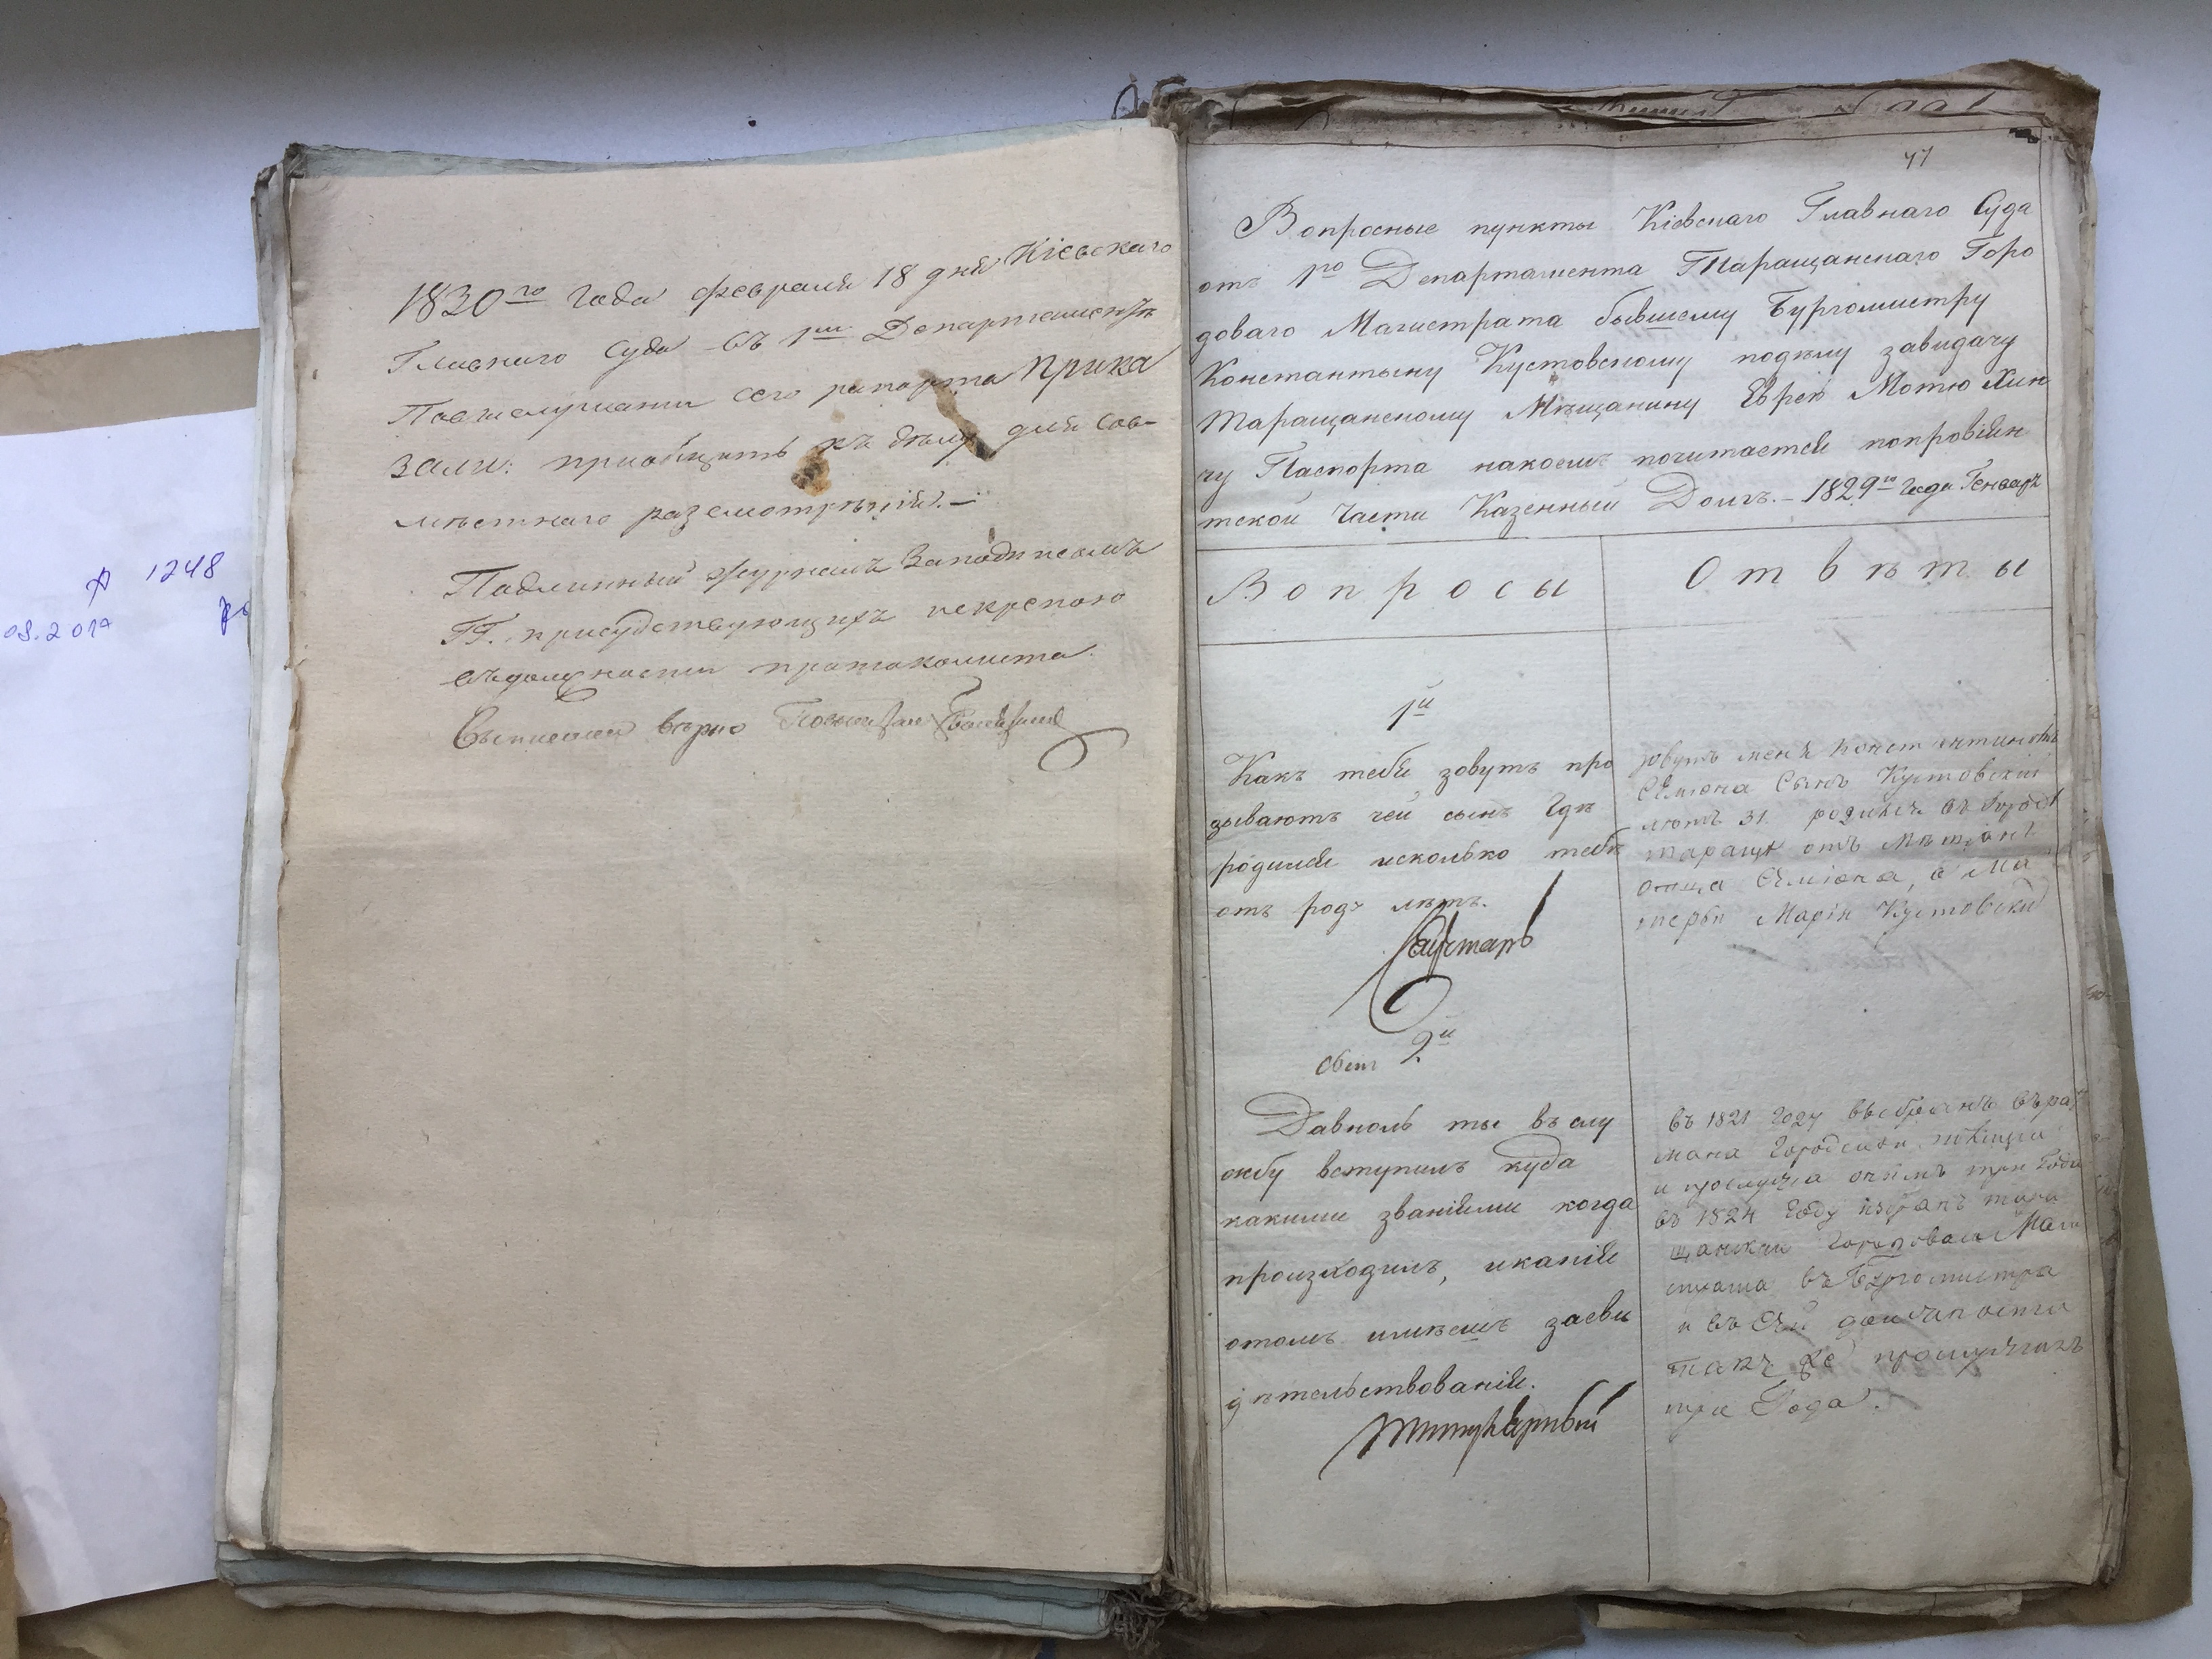 1248
08.2017
1830го года февраля 18 дня Кіевскаго
Главнаго Суда въ 1мъ Департаментѣ
По выслушаніи сего рапорта Прика
зали: пріобщить къ дѣлу для сов-
мѣстнаго разсмотрѣнія.—
Подлинный журналъ за подписомъ
ГГ. присудствующихъ искрепою
въ должности протоколиста.
Съ симъ вѣрно
47
Вопросные пункты Кіевскаго Главнаго Суда
отъ 1го Департамента Таращанскаго Горо
доваго Магистрата бывшему Бургомистру
Константыну Кустовскому подѣлу завидачу
Таращанскому Мѣщанину Еврею Мотю Хин
чу Паспорта накоемъ почитается попровіян
тской части Казенный Долгъ.— 1829го года Генваря
Вопросы
Отвѣты
1й
Какъ тебя зовутъ про
зываютъ чей сынъ Гдѣ
родился исколько тебѣ
отъ роду лѣтъ.
зовутъ меня Константиномъ
Семіона Сынъ Кустовский
лютъ 31. родился въ городѣ
таращѣ отъ Мѣщанъ
отца Семіона, а Ма
теры Маріи Кустовски
2й
Давноль ты въ слу
жбу вступилъ куда
какими званіями когда
произходилъ, икакіе
отомъ имѣешъ засви
дѣтельствованія.
въ 1821 году выбранъ въ рат
мана Городской поліціи
и прослужа онымъ три года
въ 1824 году избранъ тара
щанскаи Городоваи Маги
страта въ Бургомистра
и въ сей должности
такъ же прослужилъ
три Года.
Титулярный